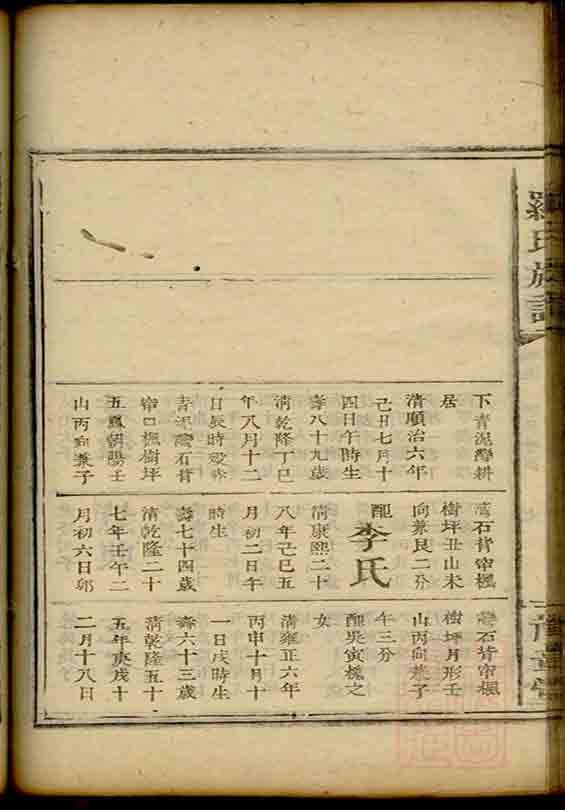 羅氏族譜
下青泥灣耕
居
清順治六年
己丑七月十
四日午時生
壽八十九歲
清乾隆丁巳
年八月十二
日辰時歿葬
青泥灣石背
帘口楓樹坪
五鳳朝陽壬
山丙向兼子
灣石背帘楓
樹坪丑山未
向兼艮二分
配李氏
清康熙二十
八年己巳五
月初二日午
時生
壽七十四歲
清乾隆二十
七年壬午二
月初六日卯
灣石背帘楓
樹坪月形壬
山丙向兼子
午三分
配吳寅樓之
女
清雍正六年
丙申十月十
一日戌時生
壽六十三歲
清乾隆五十
五年庚戌十
二月十八日
豫章堂